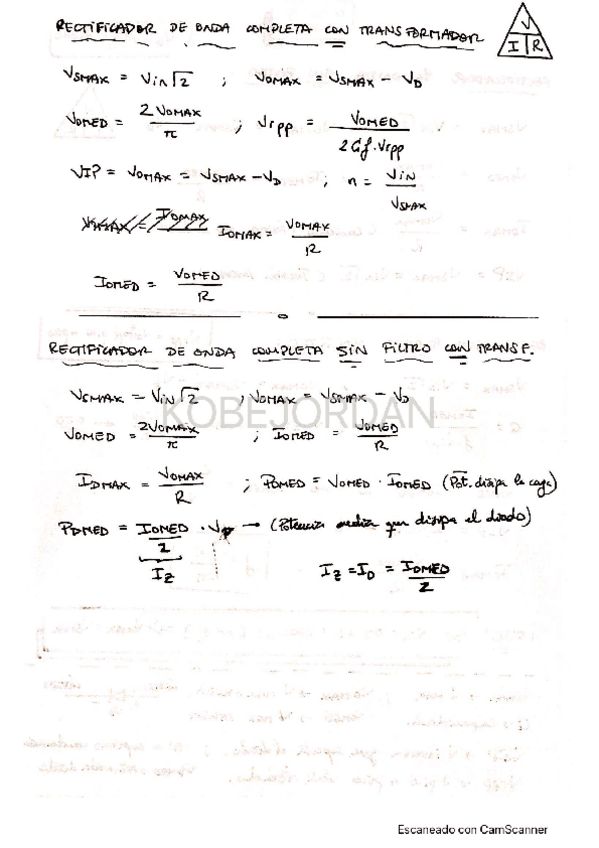 RECTIFICADOR DE ONDA COMPLETA CON TRANSFORMADOR
V
I R
VSMAX = Vin√2 ; VOMAX = VSMAX - VD
VOMED = 2VOMAX/π ; Vrpp = VOMED/2Cf.Vrpp
VIP = VOMAX = VSMAX - VD ; n = VIN/VSMAX
IOMAX = VOMAX/R
IOMED = VOMED/R
RECTIFICADOR DE ONDA COMPLETA SIN FILTRO CON TRANSF.
VSMAX = Vin√2 ; VOMAX = VSMAX - VD
KOBEJORDAN
VOMED = 2VOMAX/π ; IOMED = VOMED/R
IDMAX = VOMAX/R ; POMED = VOMED · IOMED (Pot. disipa la carga)
PDMED = IOMED/2 · VD → (Potencia media que disipa el diodo)
IZ
IZ = ID = IOMED/2
Escaneado con CamScanner